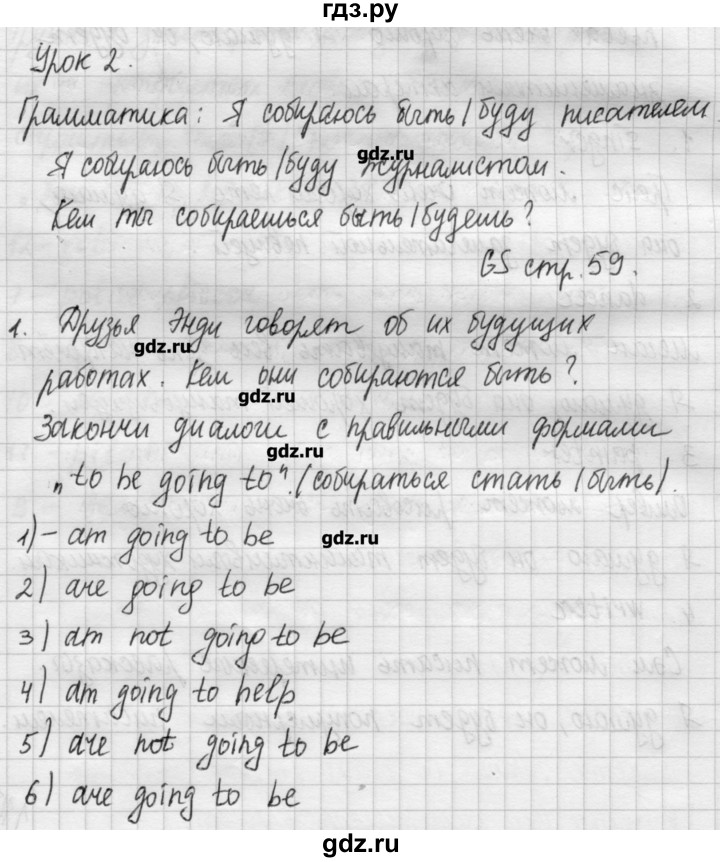 гдз.ру
Урок 2.
Грамматика: Я собираюсь быть/буду писателем.
gdz.ru
Я собираюсь быть/буду журналистом.
Кем ты собираешься быть/будешь?
GS стр. 59.
1. Друзья Энди говорят об их будущих
gdz.ru
работах. Кем они собираются быть?
gdz.ru
Закончи диалоги с правильными формами
gdz.ru
„to be going to". (собираться стать/быть).
1) - am going to be
gdz.ru
2) are going to be
3) am not going to be
4) am going to help
5) are not going to be
6) are going to be
gdz.ru